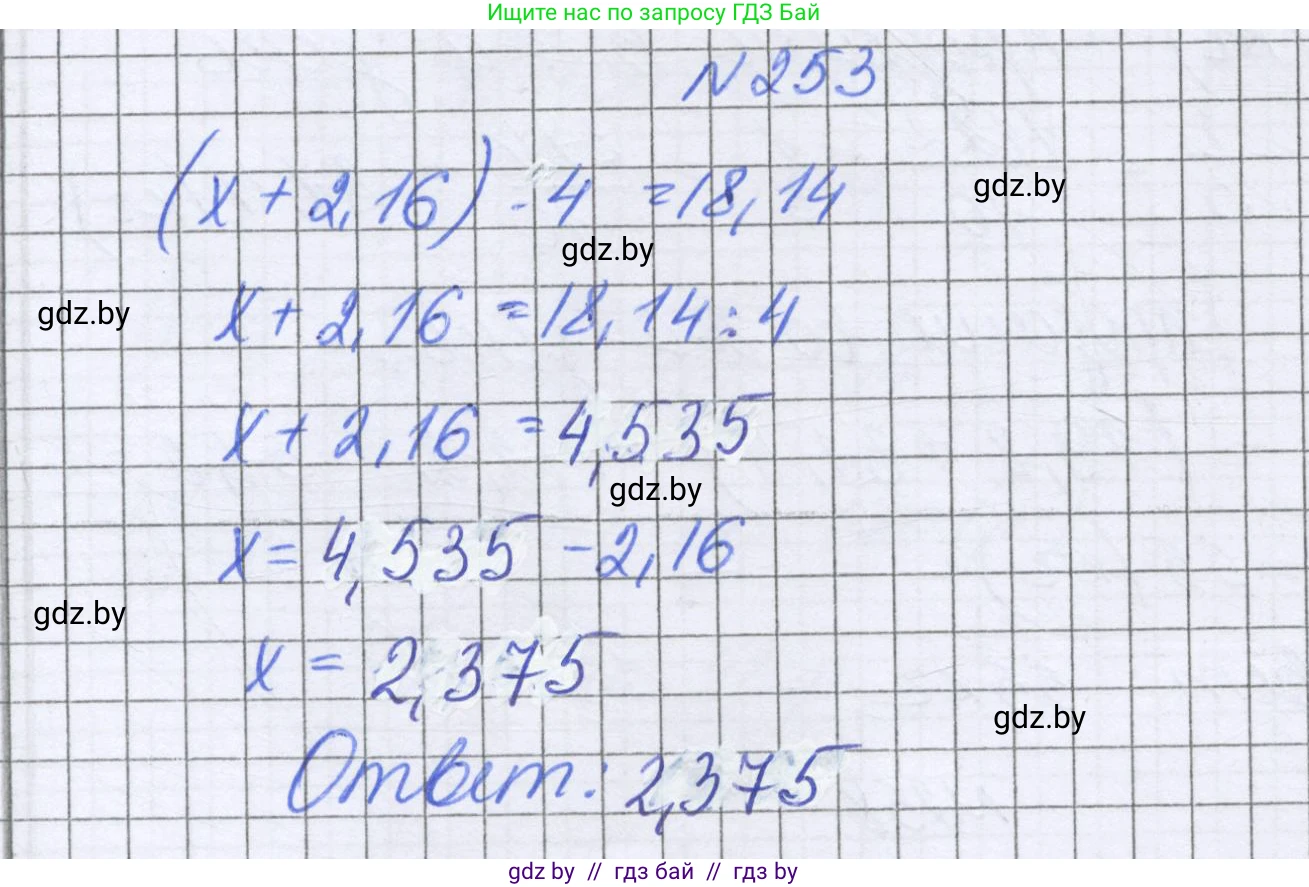 Ищите нас по запросу ГДЗ Бай
N 253
(x + 2,16) · 4 = 18,14
gdz.by
gdz.by
x + 2,16 = 18,14 : 4
gdz.by
x + 2,16 = 4,535
gdz.by
x = 4,535 - 2,16
gdz.by
x = 2,375
gdz.by
Ответ: 2,375
gdz by // гдз бай // гдз by